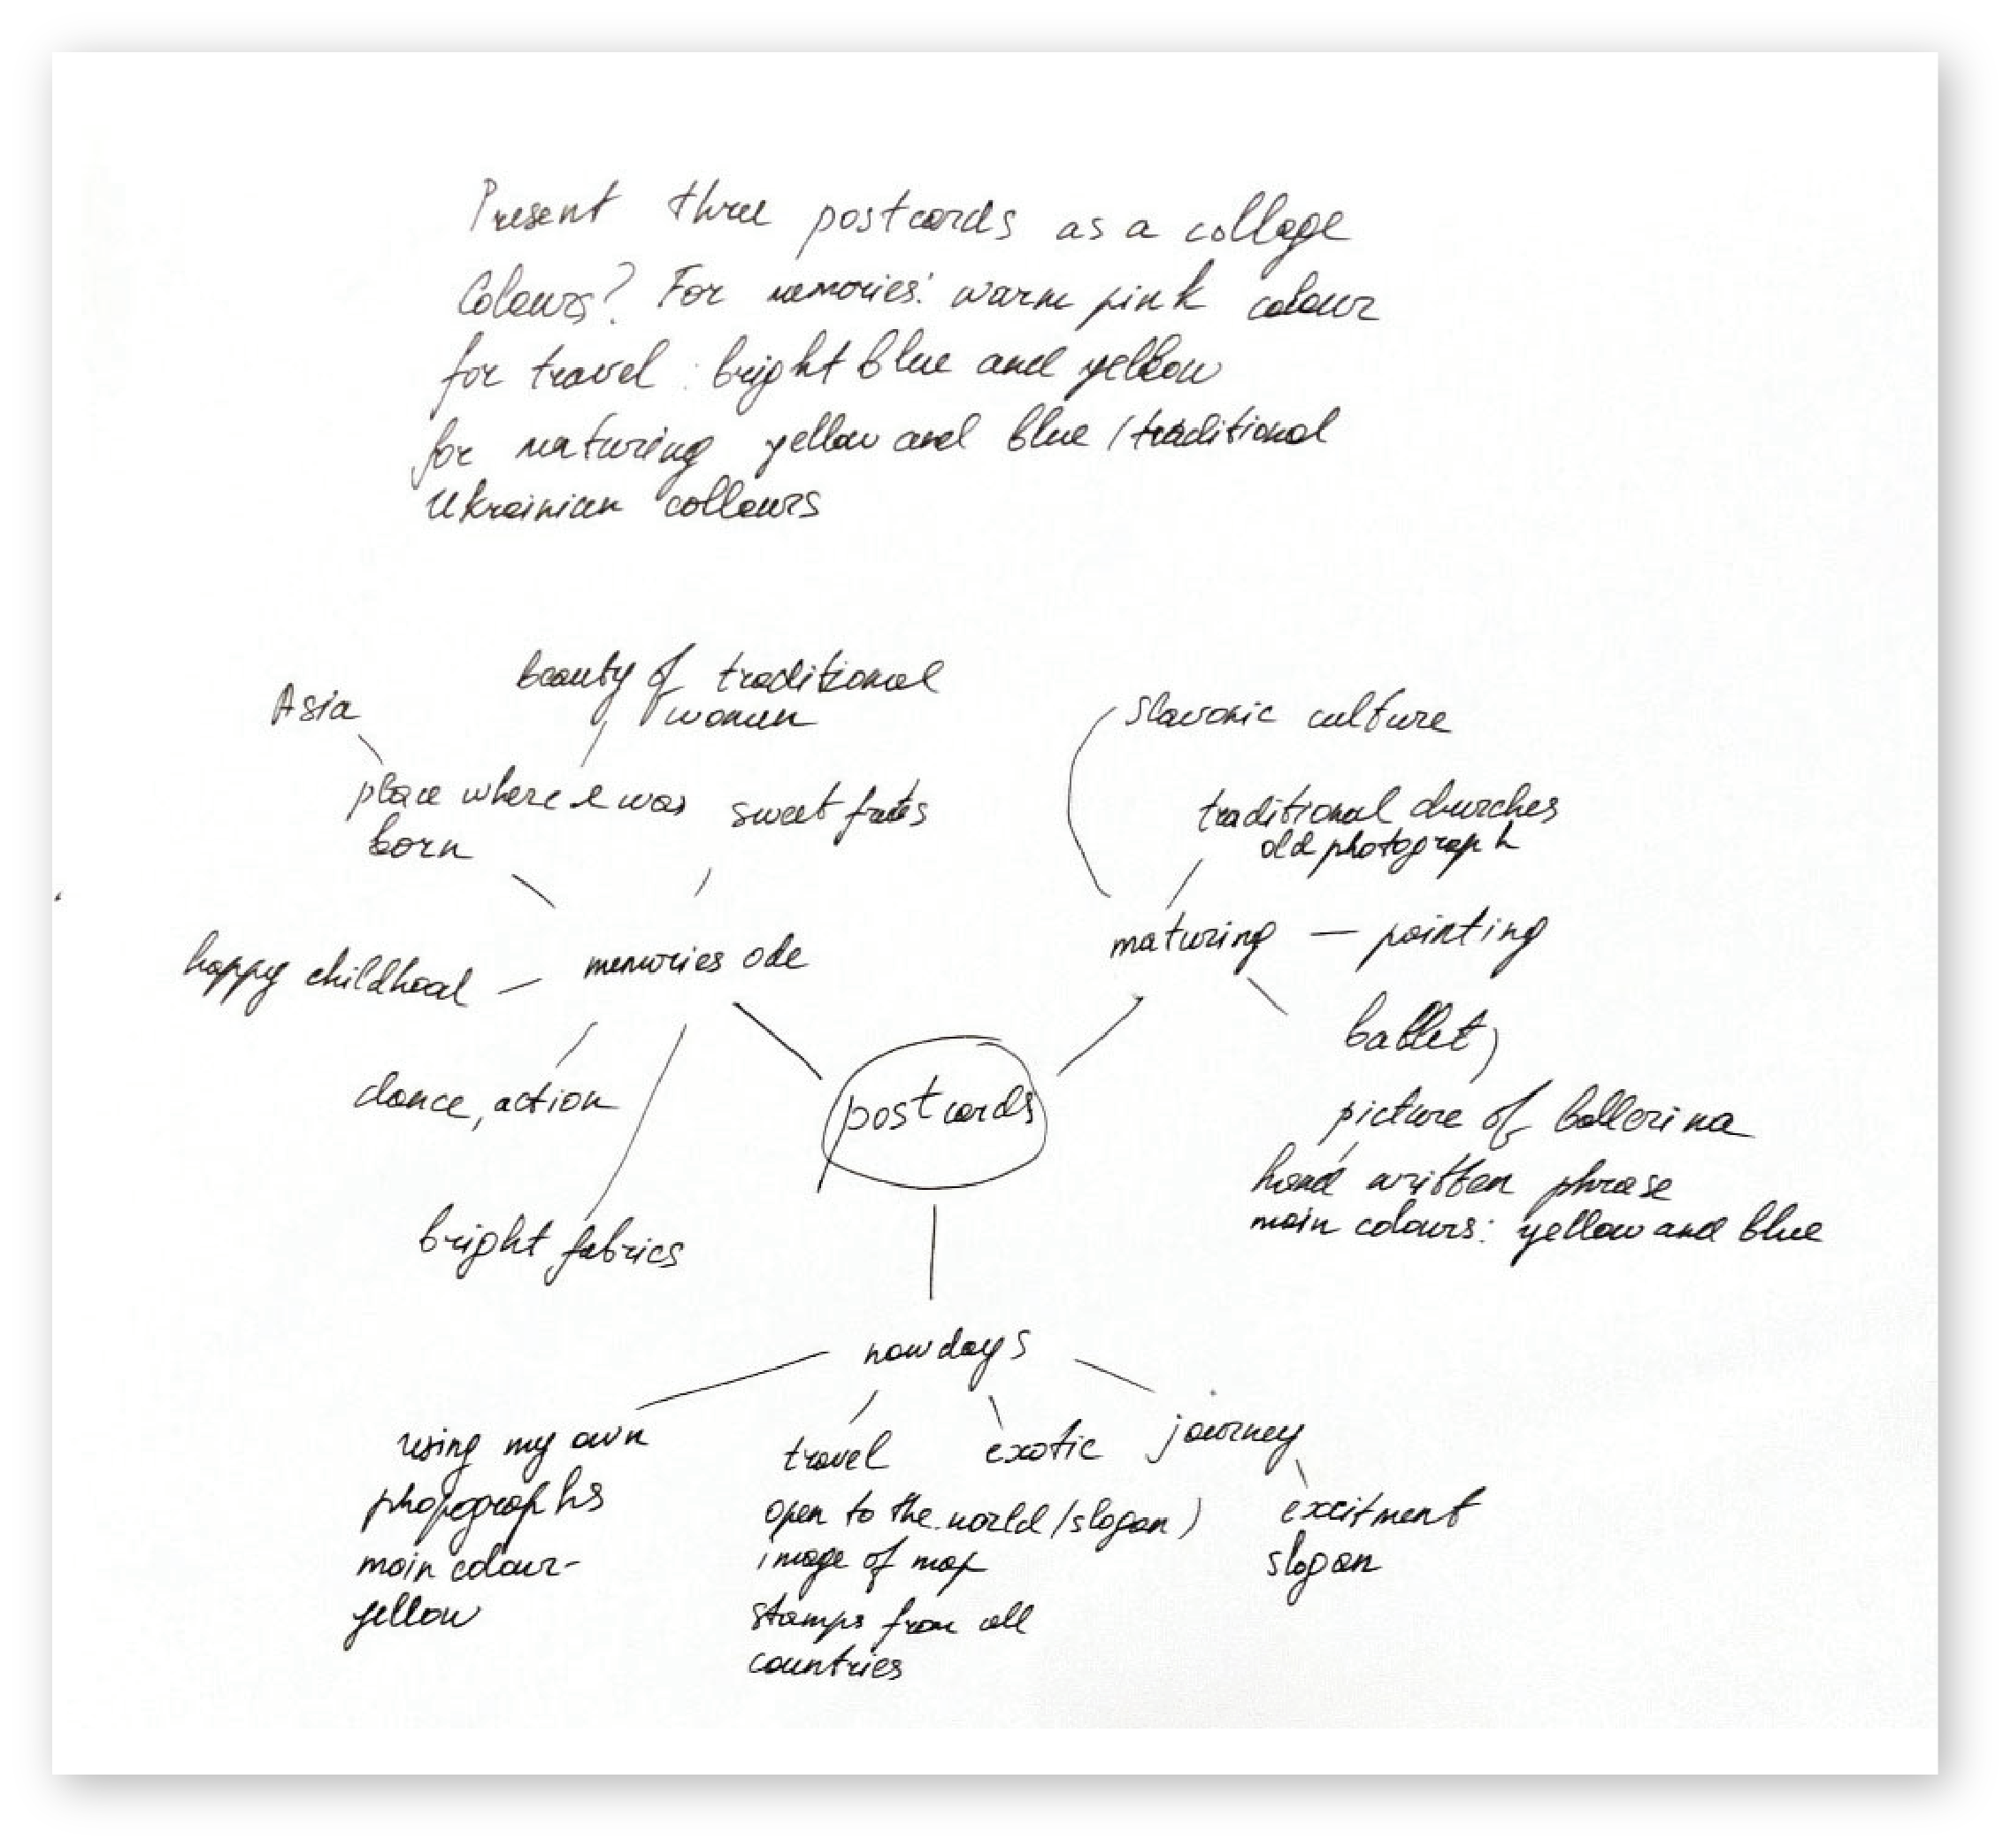 Present three postcards as a collage
Colours? For memories: warm pink colour
for travel : bright blue and yellow
for maturing yellow and blue / traditional
Ukrainian collours
beauty of traditional
women
Asia
place where I was
born
sweet
happy childhood
memories ode
dance, action
bright fabrics
Slavonic culture
traditional churches
old photograph
maturing — painting
ballet
picture of ballerina
hand written phrase
main colours: yellow and blue
postcards
nowdays
using my own
main colour-
yellow
travel
open to the world / slogan)
image of map
stamps from all
countries
exotic
journey
excitment
slogan